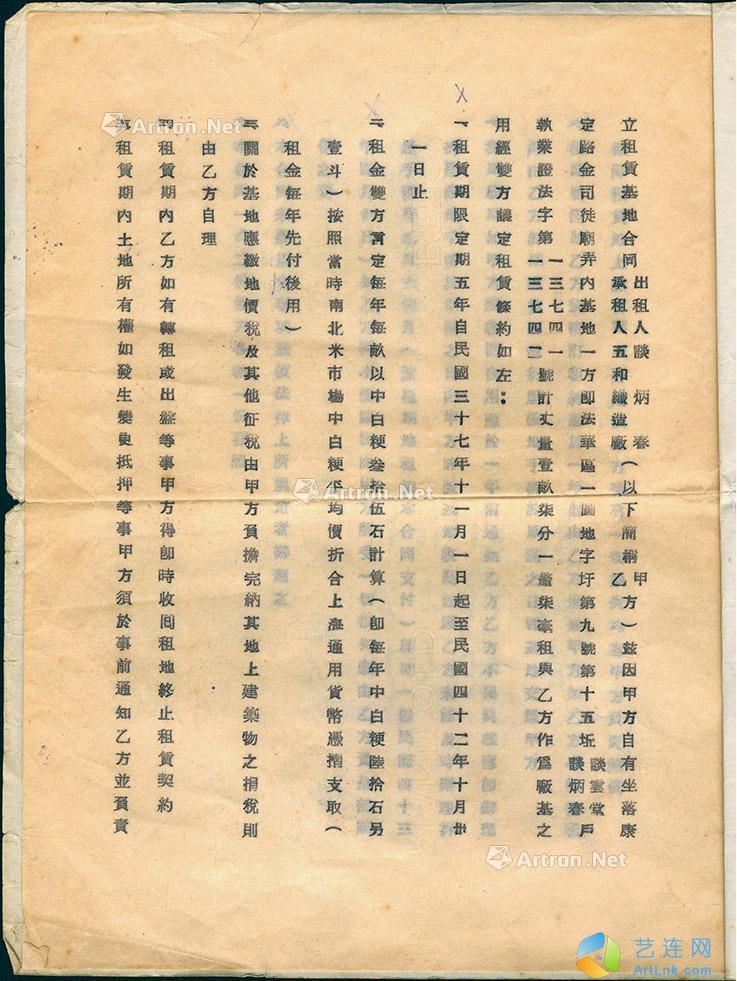 立租賃基地合同 出租人談炳春 承租人五和織造廠 (以下簡稱 甲 乙 方) 茲因甲方自有坐落康
定路金司徒廟弄內基地一方卽法華區一圖地字圩第九號第十五坵 談雲堂 談炳春 戶
執業證法字第 一三七四一 一三七四二 號計丈量壹畝柒分一釐柒毫租與乙方作爲廠基之
用經雙方議定租賃條約如左:
一租賃期限定期五年自民國三十七年十一月一日起至民國四十二年十月卅
一日止
二租金雙方言定每年每畝以中白粳叁拾伍石計算(卽每年中白粳陸拾石另
壹斗)按照當時南北米市場中白粳平均價折合上海通用貨幣憑摺支取(
租金每年先付後用)
三關於基地應繳地價税及其他征税由甲方負擔完納其地上建築物之捐税則
由乙方自理
四租賃期內乙方如有轉租或出盤等事甲方得卽時收回租地終止租賃契約
五租賃期內土地所有權如發生變更抵押等事甲方須於事前通知乙方並負責
Artron.Net
Artron.Net
Artron.Net
艺连网
ArtLnk.com